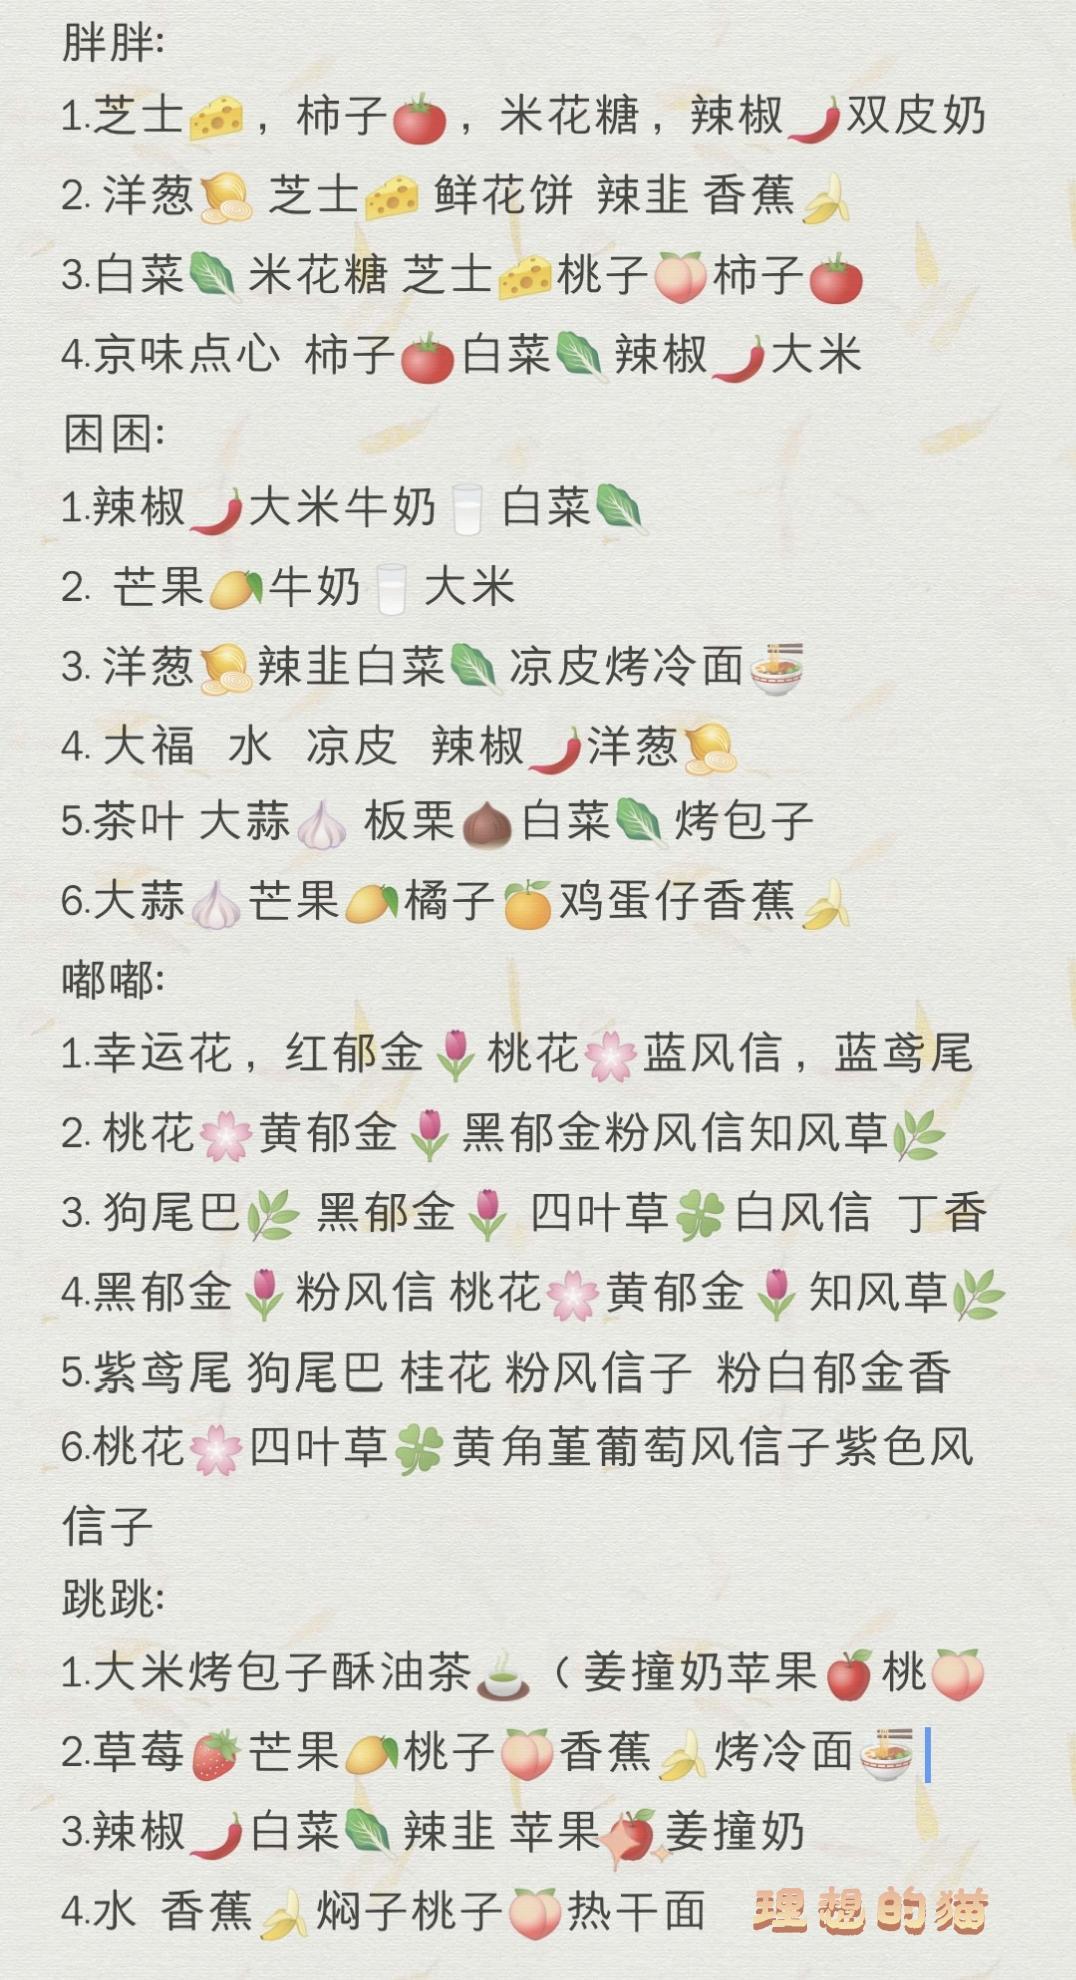 胖胖:
1.芝士🧀，柿子🍅，米花糖，辣椒🌶️双皮奶
2. 洋葱🧅 芝士🧀 鲜花饼 辣韭 香蕉🍌
3.白菜🥬 米花糖 芝士🧀桃子🍑柿子🍅
4.京味点心 柿子🍅白菜🥬辣椒🌶️大米
困困:
1.辣椒🌶️大米牛奶🥛白菜🥬
2. 芒果🥭牛奶🥛大米
3. 洋葱🧅辣韭白菜🥬凉皮烤冷面🍜
4. 大福 水 凉皮 辣椒🌶️洋葱🧅
5.茶叶 大蒜🧄 板栗🌰白菜🥬烤包子
6.大蒜🧄芒果🥭橘子🍊鸡蛋仔香蕉🍌
嘟嘟:
1.幸运花，红郁金🌷桃花🌸蓝风信，蓝鸢尾
2. 桃花🌸黄郁金🌷黑郁金粉风信知风草🌿
3. 狗尾巴🌿 黑郁金🌷 四叶草🍀白风信 丁香
4.黑郁金🌷粉风信 桃花🌸黄郁金🌷知风草🌿
5.紫鸢尾 狗尾巴 桂花 粉风信子 粉白郁金香
6.桃花🌸四叶草🍀黄角堇葡萄风信子紫色风
信子
跳跳:
1.大米烤包子酥油茶🍵（姜撞奶苹果🍎桃🍑
2.草莓🍓芒果🥭桃子🍑香蕉🍌烤冷面🍜
3.辣椒🌶️白菜🥬辣韭 苹果🍎姜撞奶
4.水 香蕉🍌焖子桃子🍑热干面
理想的猫